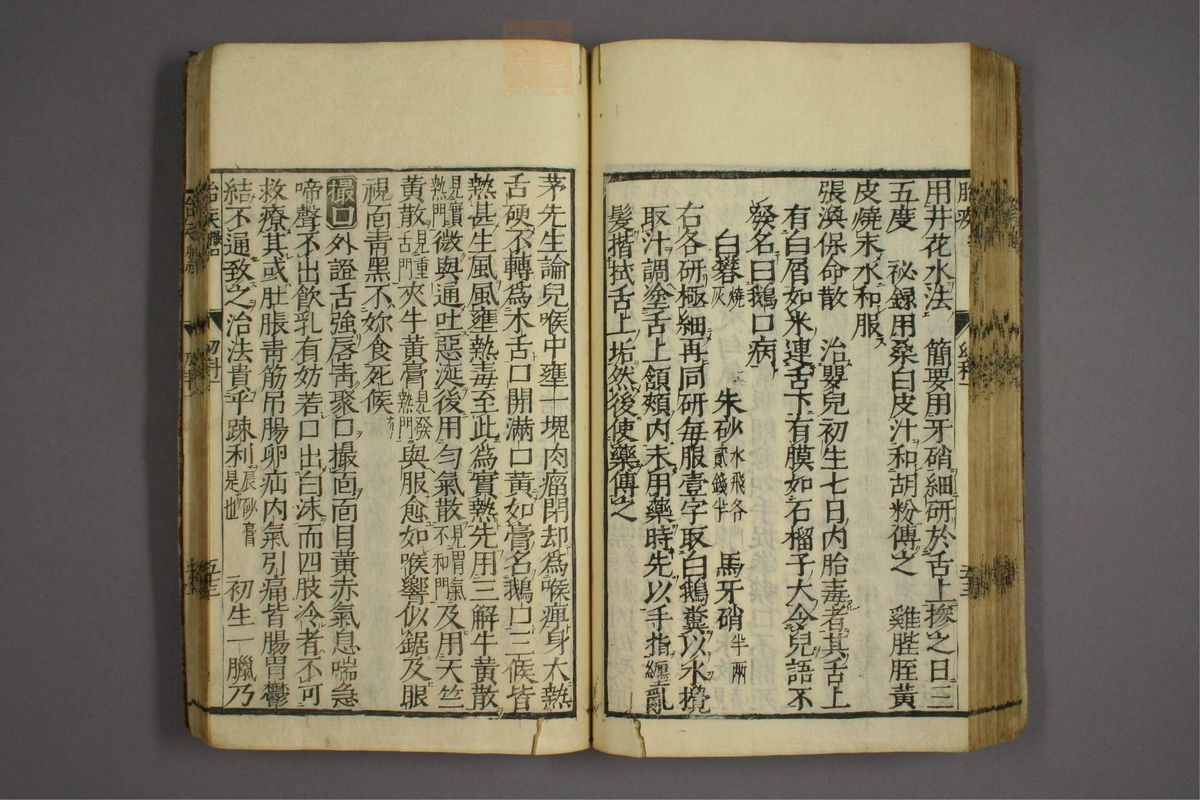 用井花水法　簡要用牙硝細研於舌上摻之日三
五度　祕録用桑白皮汁和胡粉傅之　雞䏶胵黄
皮燒末水和服
張渙保命散　治嬰兒初生七日内胎毒者其舌上
有白屑如米連舌下有膜如石榴子大令兒語不
發名曰鵝口病
白礬燒灰　朱砂水飛各貳錢半　馬牙硝半兩
右各研極細再同研毎服壹字取白鵝糞以水攪
取汁調塗舌上頷頰内末用藥時先以手指纏亂
髮揩拭舌上垢然後使藥傅之
茅先生論兒喉中壅一塊肉瘤閉却為喉痺身大熱
舌硬不轉為木舌口開滿口黄如膏名鵝口三候皆
熱甚生風風壅熱毒至此為實熱先用三解牛黄散
見實熱門微與通吐惡涎後用勻氣散見胃氣不和門及用天竺
黄散見重舌門夾牛黄膏見發熱門與服愈如喉響似鋸及眼
視面青黑不妳食死候
撮口　外證舌強唇青聚口撮面面目黄赤氣息喘急
啼聲不出飲乳有妨若口出白沫而四肢冷者不可
救療其或肚脹青筋吊腸卵疝内氣引痛皆腸胃鬱
結不通致之治法貴乎疎利辰砂膏是也　初生一臘乃